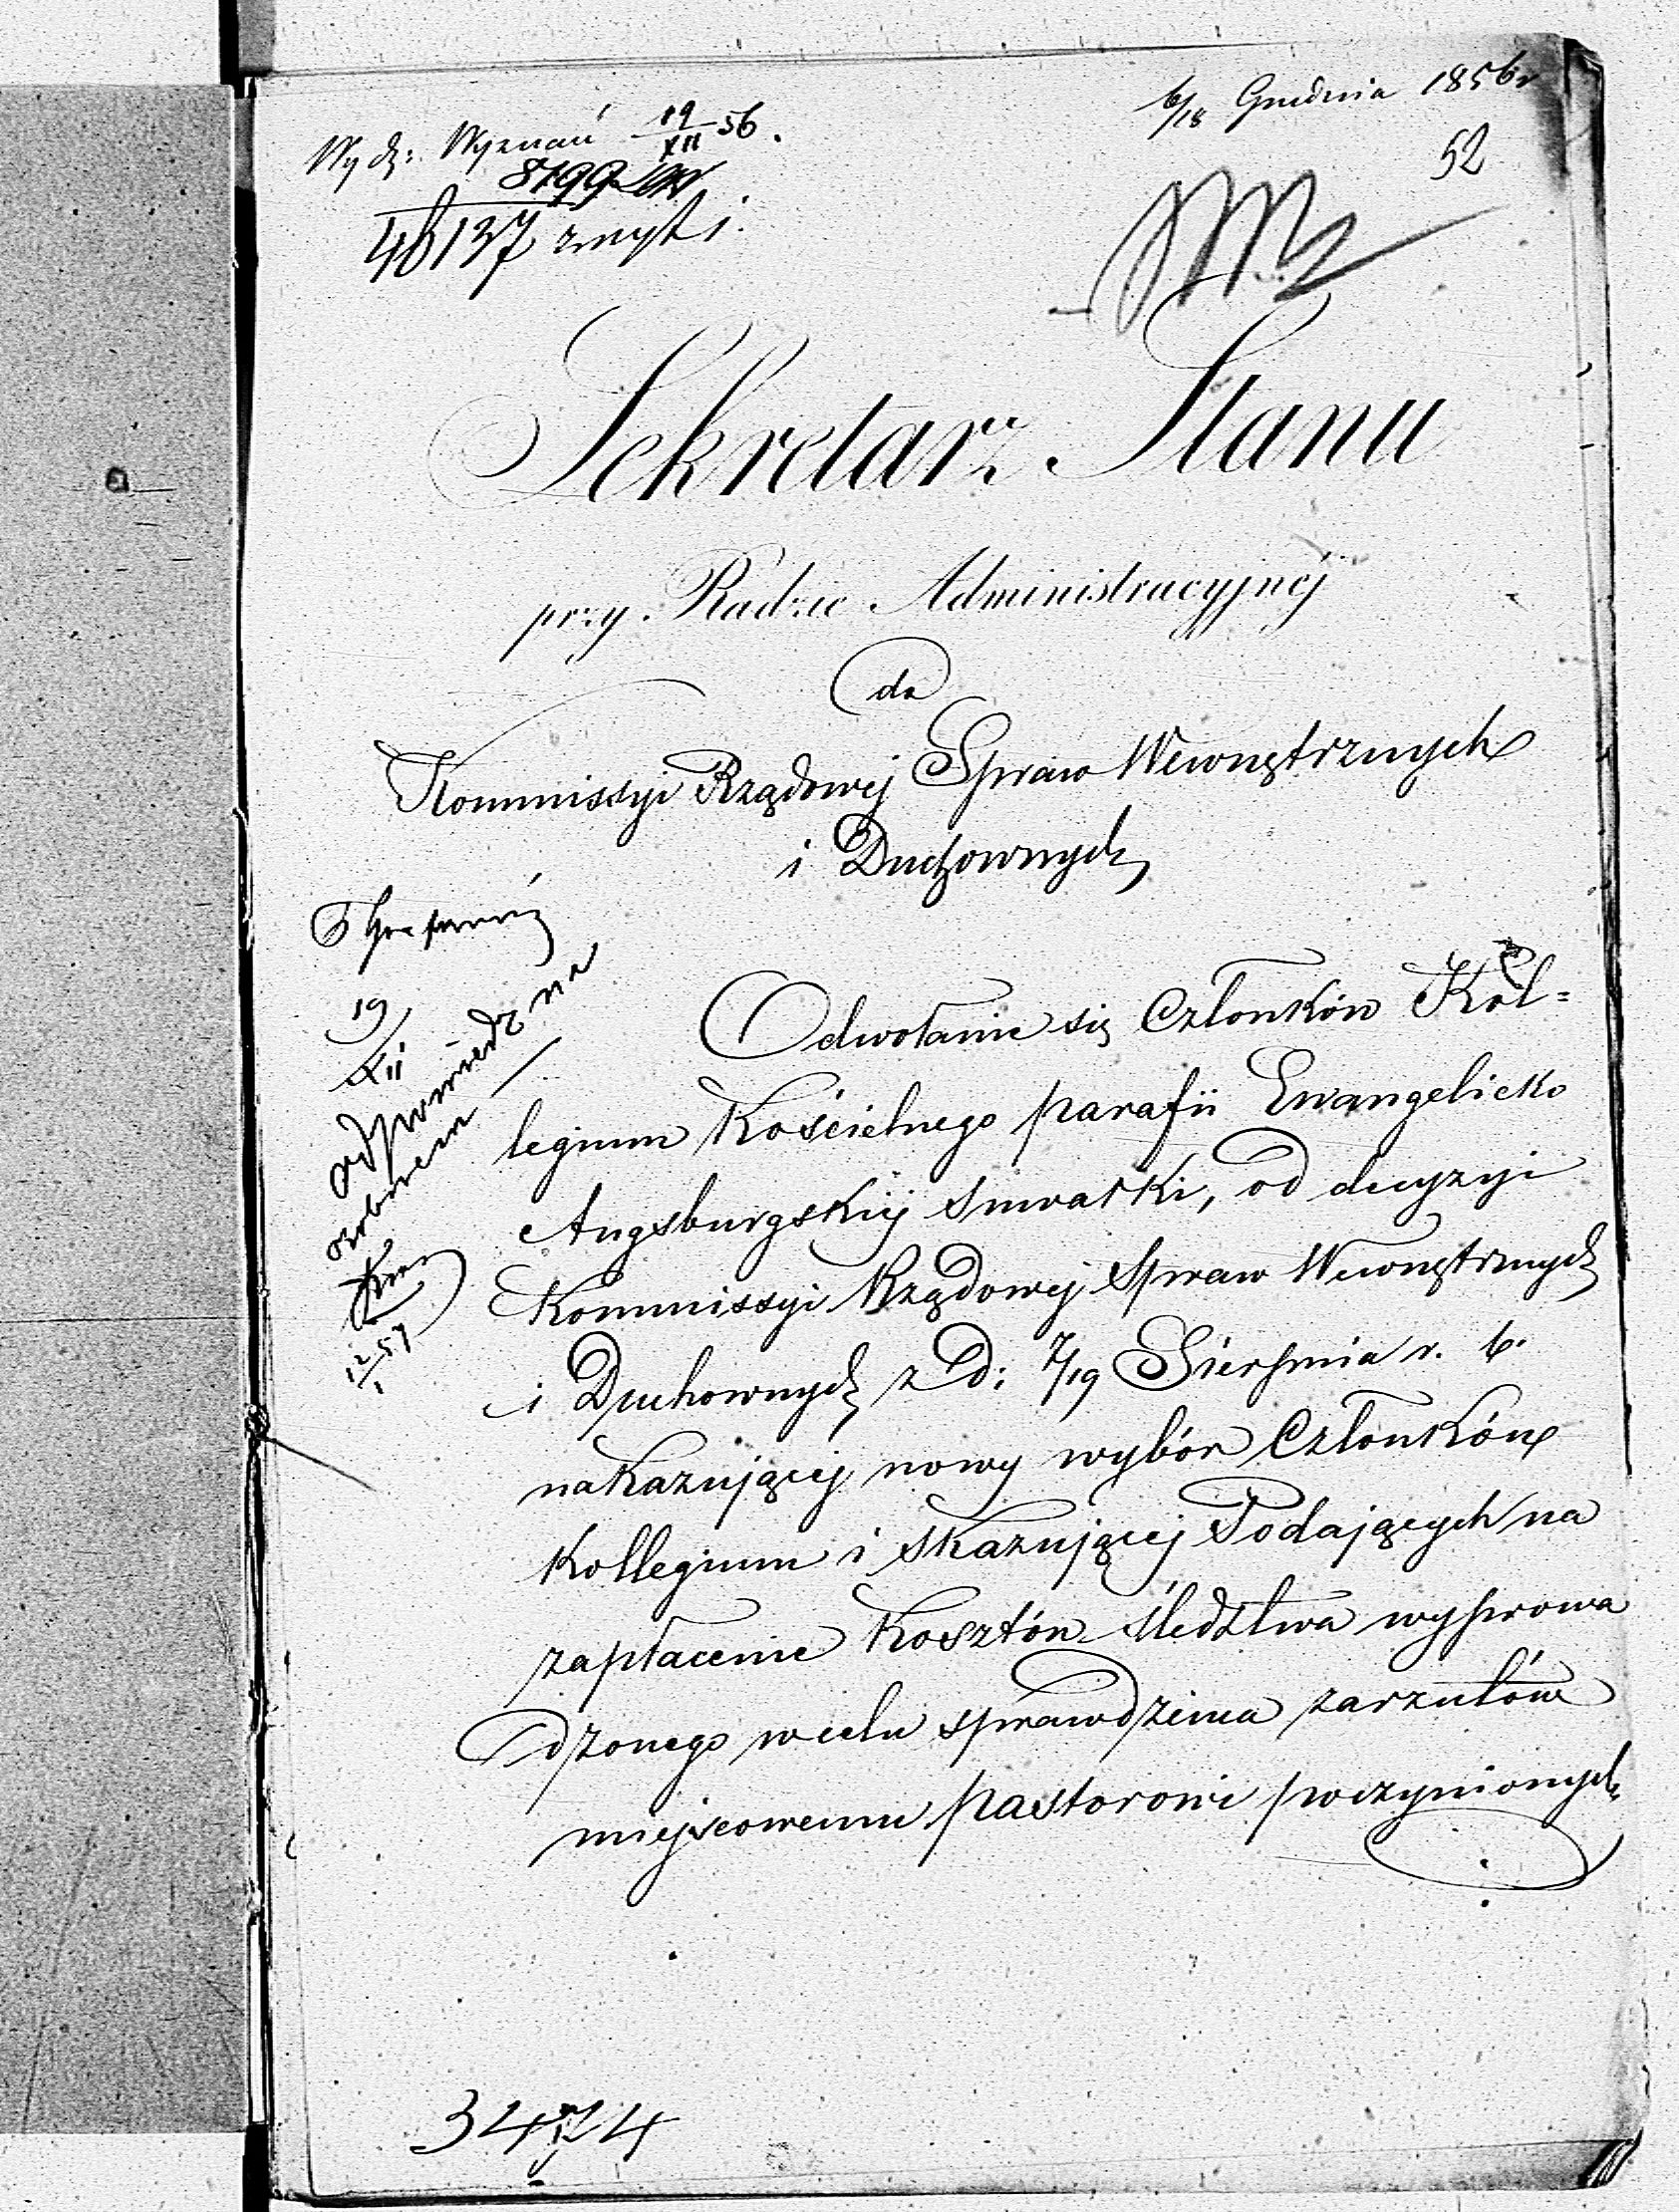 6/18 Grudnia 1856 r
52
Wydz: Wyznań 19/XII 56.
8799
48137
Sekretarz Stanu
przy Radzie Administracyjnéj
do
Kommissyi Rządowéj Spraw Wewnętrznych
i Duchownych
19/XII
odpowiedź na
osobnem
12/1 57
Odwołanie się Członków Kol=
legium Kościelnego parafii Ewangelicko
Augsburgskiéj Suwałki, od decyzyi
Kommissyi Rządowéj Spraw Wewnętrznych
i Duchownych z d: 7/19 Sierpnia r. b.
nakazującéj nowy wybór Członków
Kollegium i skazującéj Podających na
zapłacenie Kosztów śledztwa wyprowa
dzonego w celu sprawdzenia zarzutów
miejscowemu pastorowi poczynionych
3474